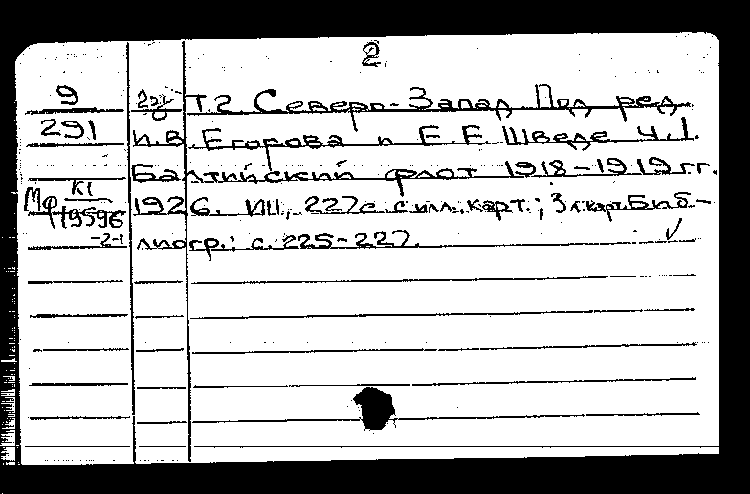 2
9
291
Мф К1
19596
-2-1
Т.2 Северо-Запад. Под ред.
И.В. Егорова и Е.Е Шведе. Ч.1.
Балтийский флот 1918-1919гг.
1926. III, 227с. с илл., карт.; 3 л. карт. Биб-
лиогр.: с. 225-227.